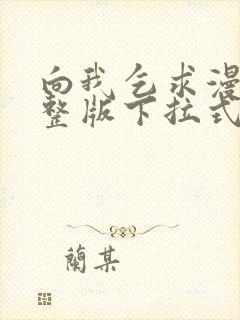 向我乞求漫
整版下拉式
蘭某